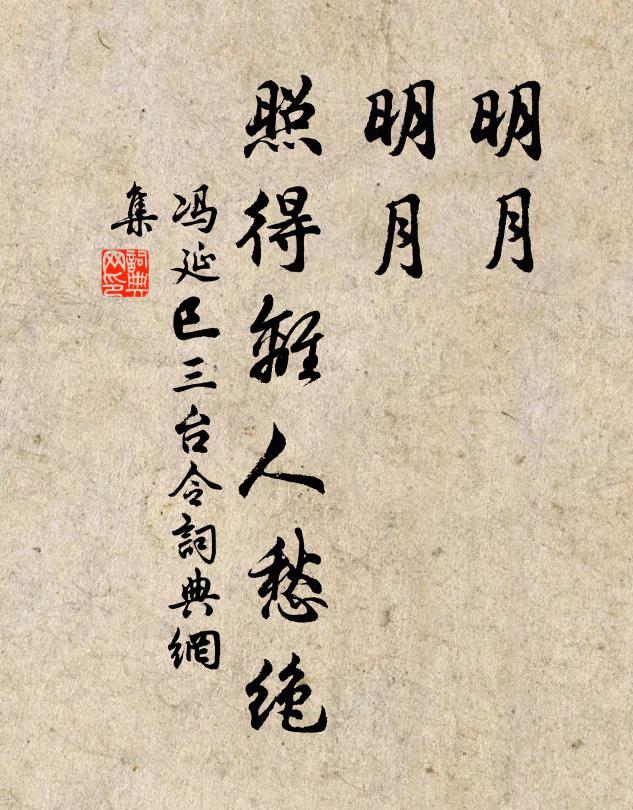 明月
明月
照得離人愁绝
冯延巳三台令詞典網
集
詞典
网印